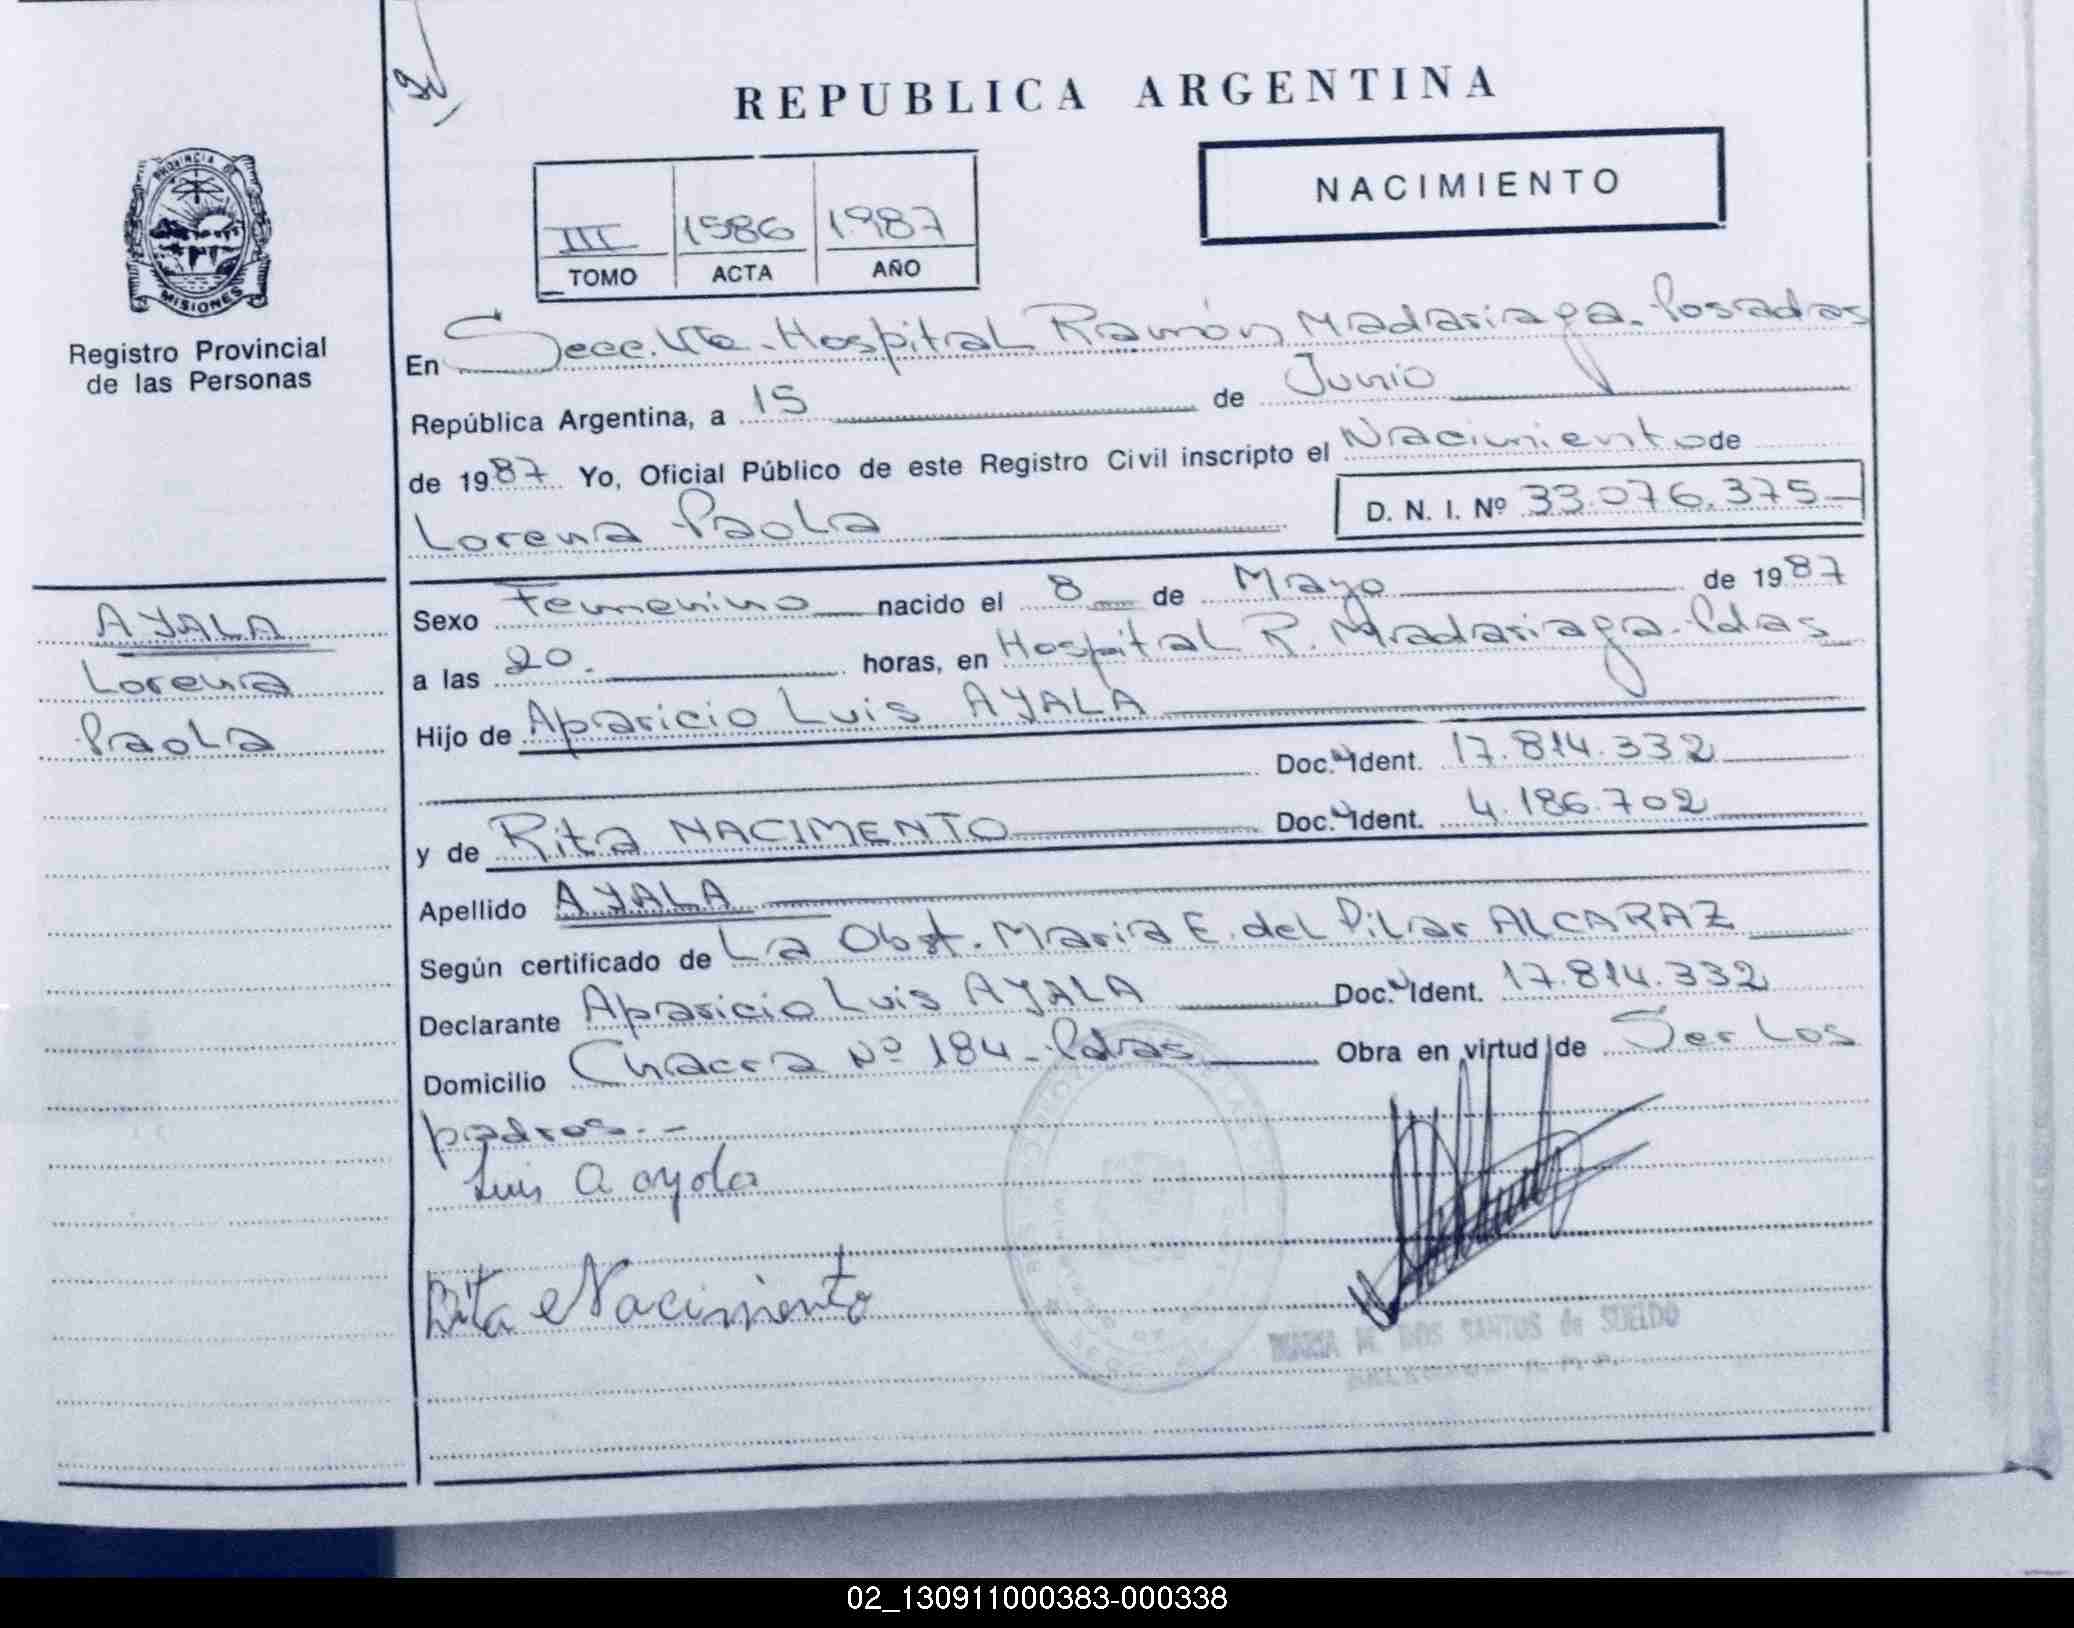 REPUBLICA ARGENTINA
NACIMIENTO
III 1586 1987
TOMO ACTA AÑO
PROVINCIA DE
MISIONES
Registro Provincial
de las Personas
AYALA
Lorena
Paola
En Secc. Vta. Hospital Ramón Madariaga. Posadas
República Argentina, a 15 de Junio
de 1987 Yo, Oficial Público de este Registro Civil inscripto el Nacimiento de
Lorena Paola D. N. I. Nº 33.076.375
Sexo Femenino nacido el 8 de Mayo de 1987
a las 20. horas, en Hospital R. Madariaga. Pdas
Hijo de Aparicio Luis AYALA
Doc. Ident. 17.814.332
y de Rita NACIMENTO Doc. Ident. 4.186.702
Apellido AYALA
Según certificado de La Obst. Maria E. del Pilar ALCARAZ
Declarante Aparicio Luis AYALA Doc. Ident. 17.814.332
Domicilio Chacra Nº 184 - Pdas Obra en virtud de Ser Los
padres.-
Luis A ayala
Rita Nacimento
MARIA M. DOS SANTOS de SUELDO
02_130911000383-000338